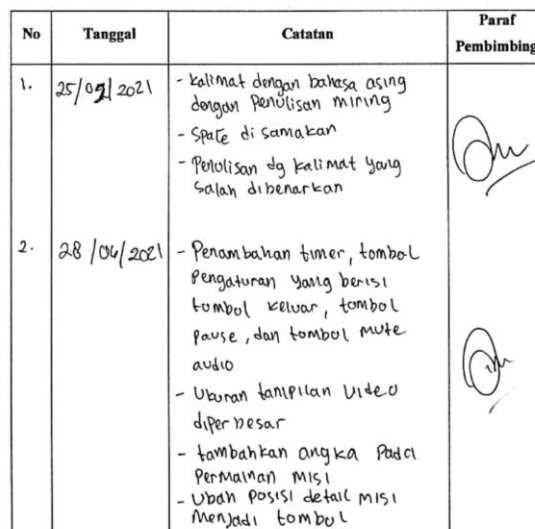 No Tanggal Catatan Paraf Pembimbing
1. 25/02/2021 - Kalimat dengan bahasa asing
dengan Penulisan miring
- Spate di samakan
- Penulisan dg kalimat yang
salah dibenarkan
2. 28/06/2021 - Penambahan timer, tombol
Pengaturan yang berisi
tombol keluar, tombol
pause, dan tombol mute
audio
- Ukuran tampilan video
diperbesar
- tambahkan angka Pada
Permainan misi
- Ubah Posisi detail misi
Menjadi tombol